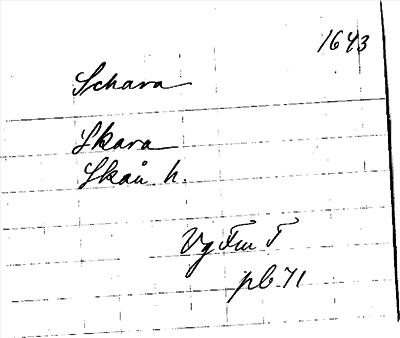 1643
Schara
Skara
Skån h.
Vg Fm T
pb 71